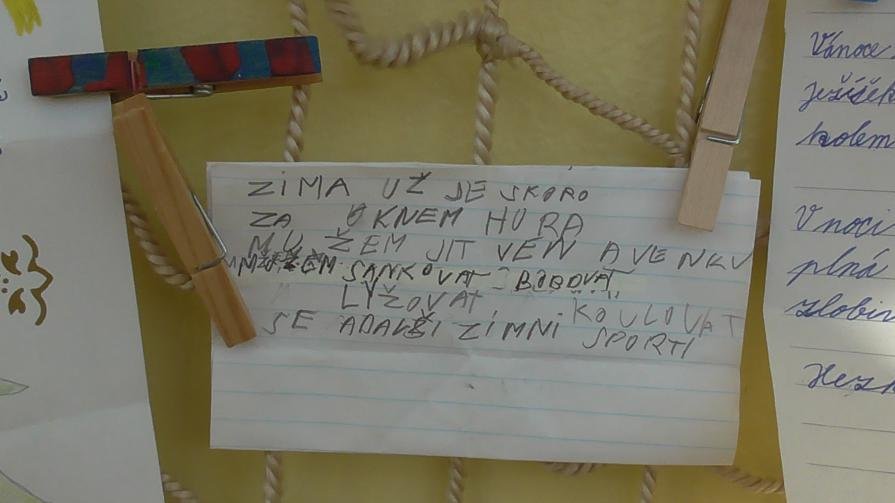 ZIMA UŽ JE SKORO
ZA OKNEM HURA
MUŽEM JIT VEN A VENKU
MUŽEM SANKOVAT BOBOVAT
LYŽOVAT KOULOVAT
SE ADALŠI ZIMNI SPORTI
Vánoce
ježíšek
kolem
V noci
plná
zlobir